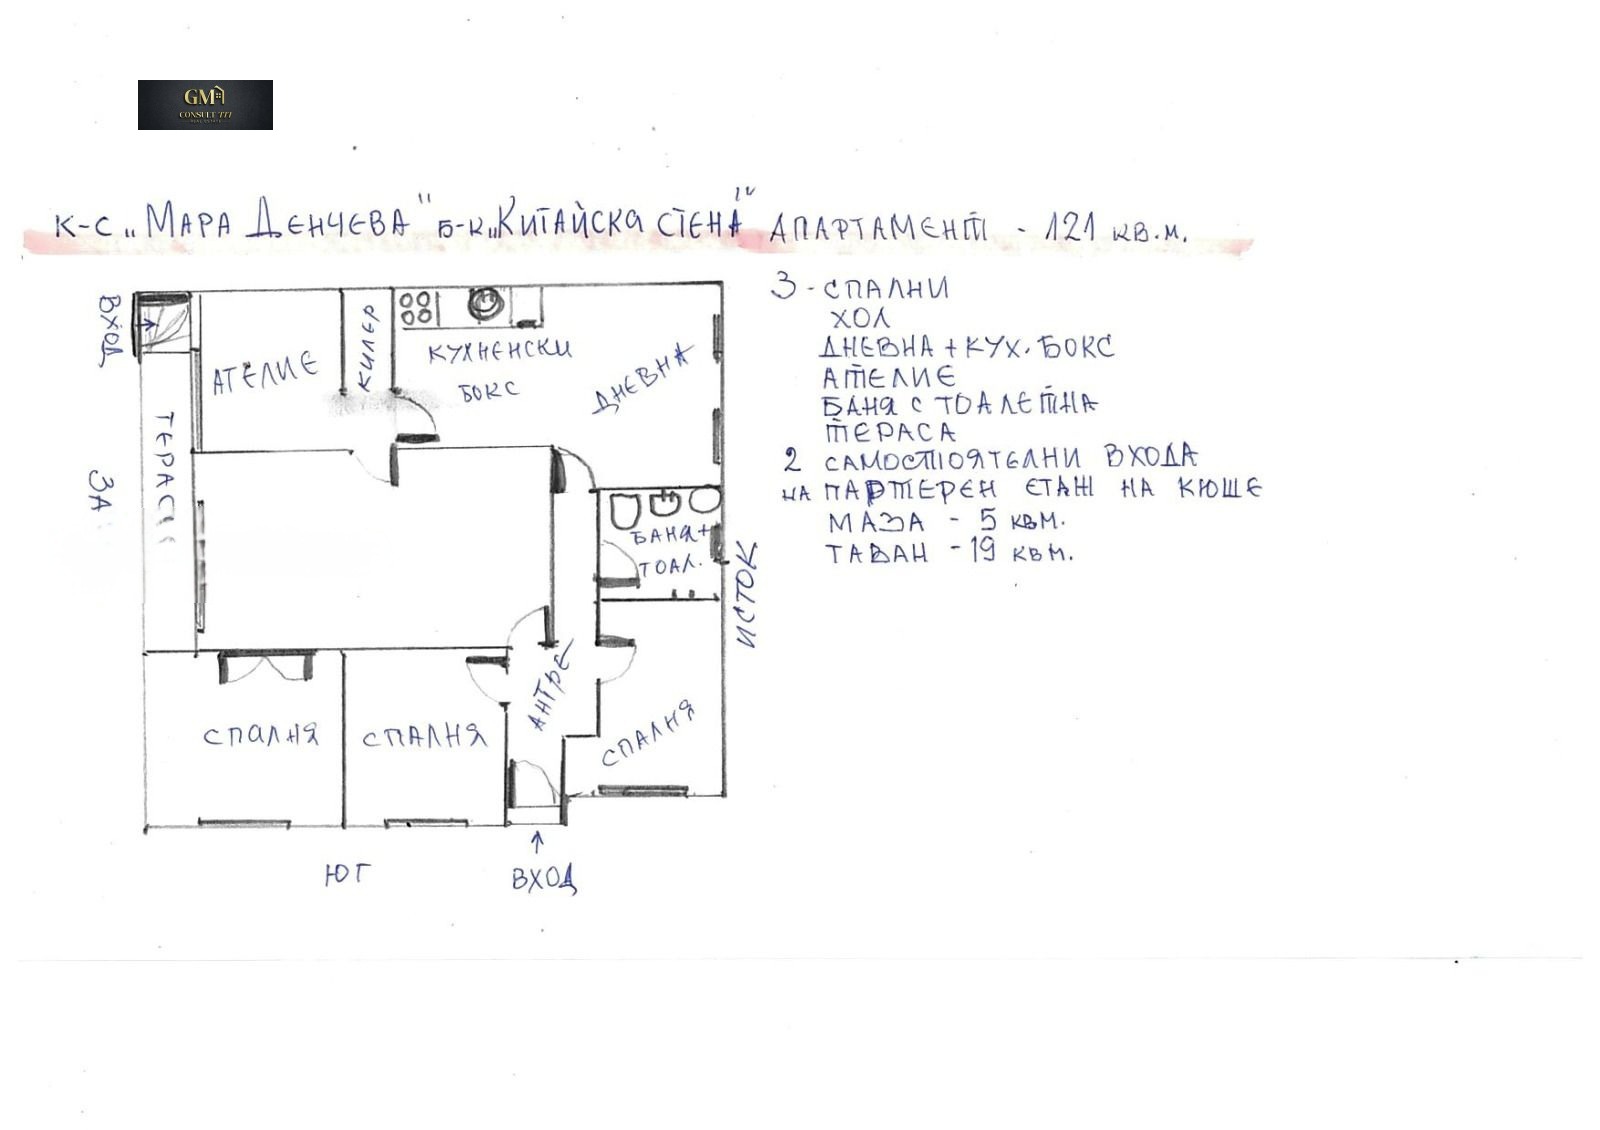 GM
CONSULT 777
REAL ESTATE
К-С „МАРА ДЕНЧЕВА" Б-К „КИТАЙСКА СТЕНА" АПАРТАМЕНТ - 121 КВ.М.
3 - СПАЛНИ
ХОЛ
ДНЕВНА + КУХ. БОКС
АТЕЛИЕ
БАНЯ С ТОАЛЕТНА
ТЕРАСА
2 САМОСТОЯТЕЛНИ ВХОДА
НА ПАРТЕРЕН ЕТАЖ НА КЮШЕ
МАЗА - 5 КВМ.
ТАВАН - 19 КВМ.
ВХОД
АТЕЛИЕ
КИЛЕР
КУХНЕНСКИ
БОКС
ДНЕВНА
ТЕРАС
ЗА
БАНЯ+
ТОАЛ.
ИСТОК
АНТРЕ
СПАЛНЯ
СПАЛНЯ
СПАЛНЯ
ЮГ
ВХОД